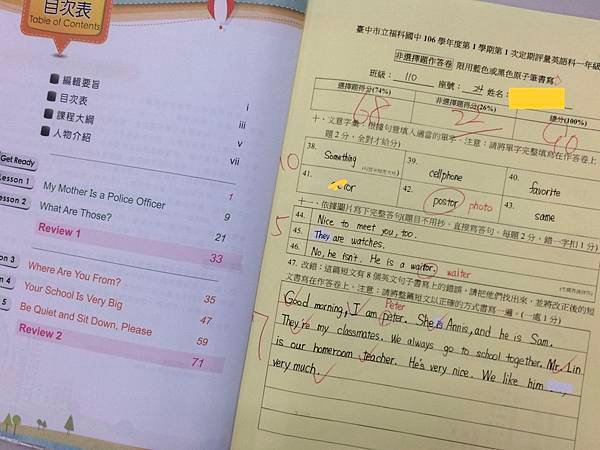 目次表
Table of Contents
編輯要旨 i
目次表 iii
課程大綱 v
人物介紹 vii
Get Ready
Lesson 1 My Mother Is a Police Officer 1
Lesson 2 What Are Those? 9
21
Review 1 33
Where Are You From? 35
Your School Is Very Big 47
Be Quiet and Sit Down, Please 59
Review 2 71
臺中市立福科國中 106 學年度第 1 學期第 1 次定期評量英語科一年級
非選擇題作答卷 限用藍色或黑色原子筆書寫
班級: 110 座號: 24 姓名:
選擇題得分(74%) 非選擇題得分(26%) 總分(100%)
68 22 90
十、文意字彙：根據句意填入適當的單字。注意：請將單字完整填寫在作答卷上
題 2 分，全對才給分)
10
38. Something 39. cellphone 40. favorite
41. 42. postor photo 43. same
十一、依據圖片寫下完整答句(題目不用抄，直接寫答句，每題 2 分，錯一字扣 1 分)
5
44. Nice to meet you, too.
45. They are watches.
46. No, he isn't. He is a waitor. waiter
47. 改錯：這篇短文有 8 個英文句子書寫上的錯誤，請把他們找出來，並將改正後的短
文書寫在作答卷上。注意：請將整篇短文以正確的方式書寫一遍。(一處 1 分)
7
Peter
Good morning, I am peter. She is Annis, and he is Sam.
They're my classmates. We always go to school together. Mr. Lin
is our homeroom teacher. He's very nice. We like him
very much.